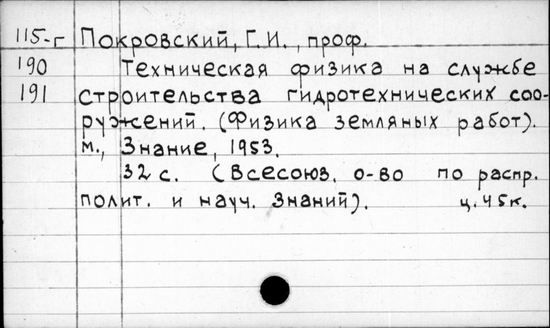 115-г Покровский, Г.И., проф.
190 Техническая физика на службе
191 строительства гидротехнических соо-
ружений. (Физика земляных работ).
М., Знание, 1953.
32 с. (Всесоюз. о-во по распр.
полит. и науч. знаний). ц. 45к.